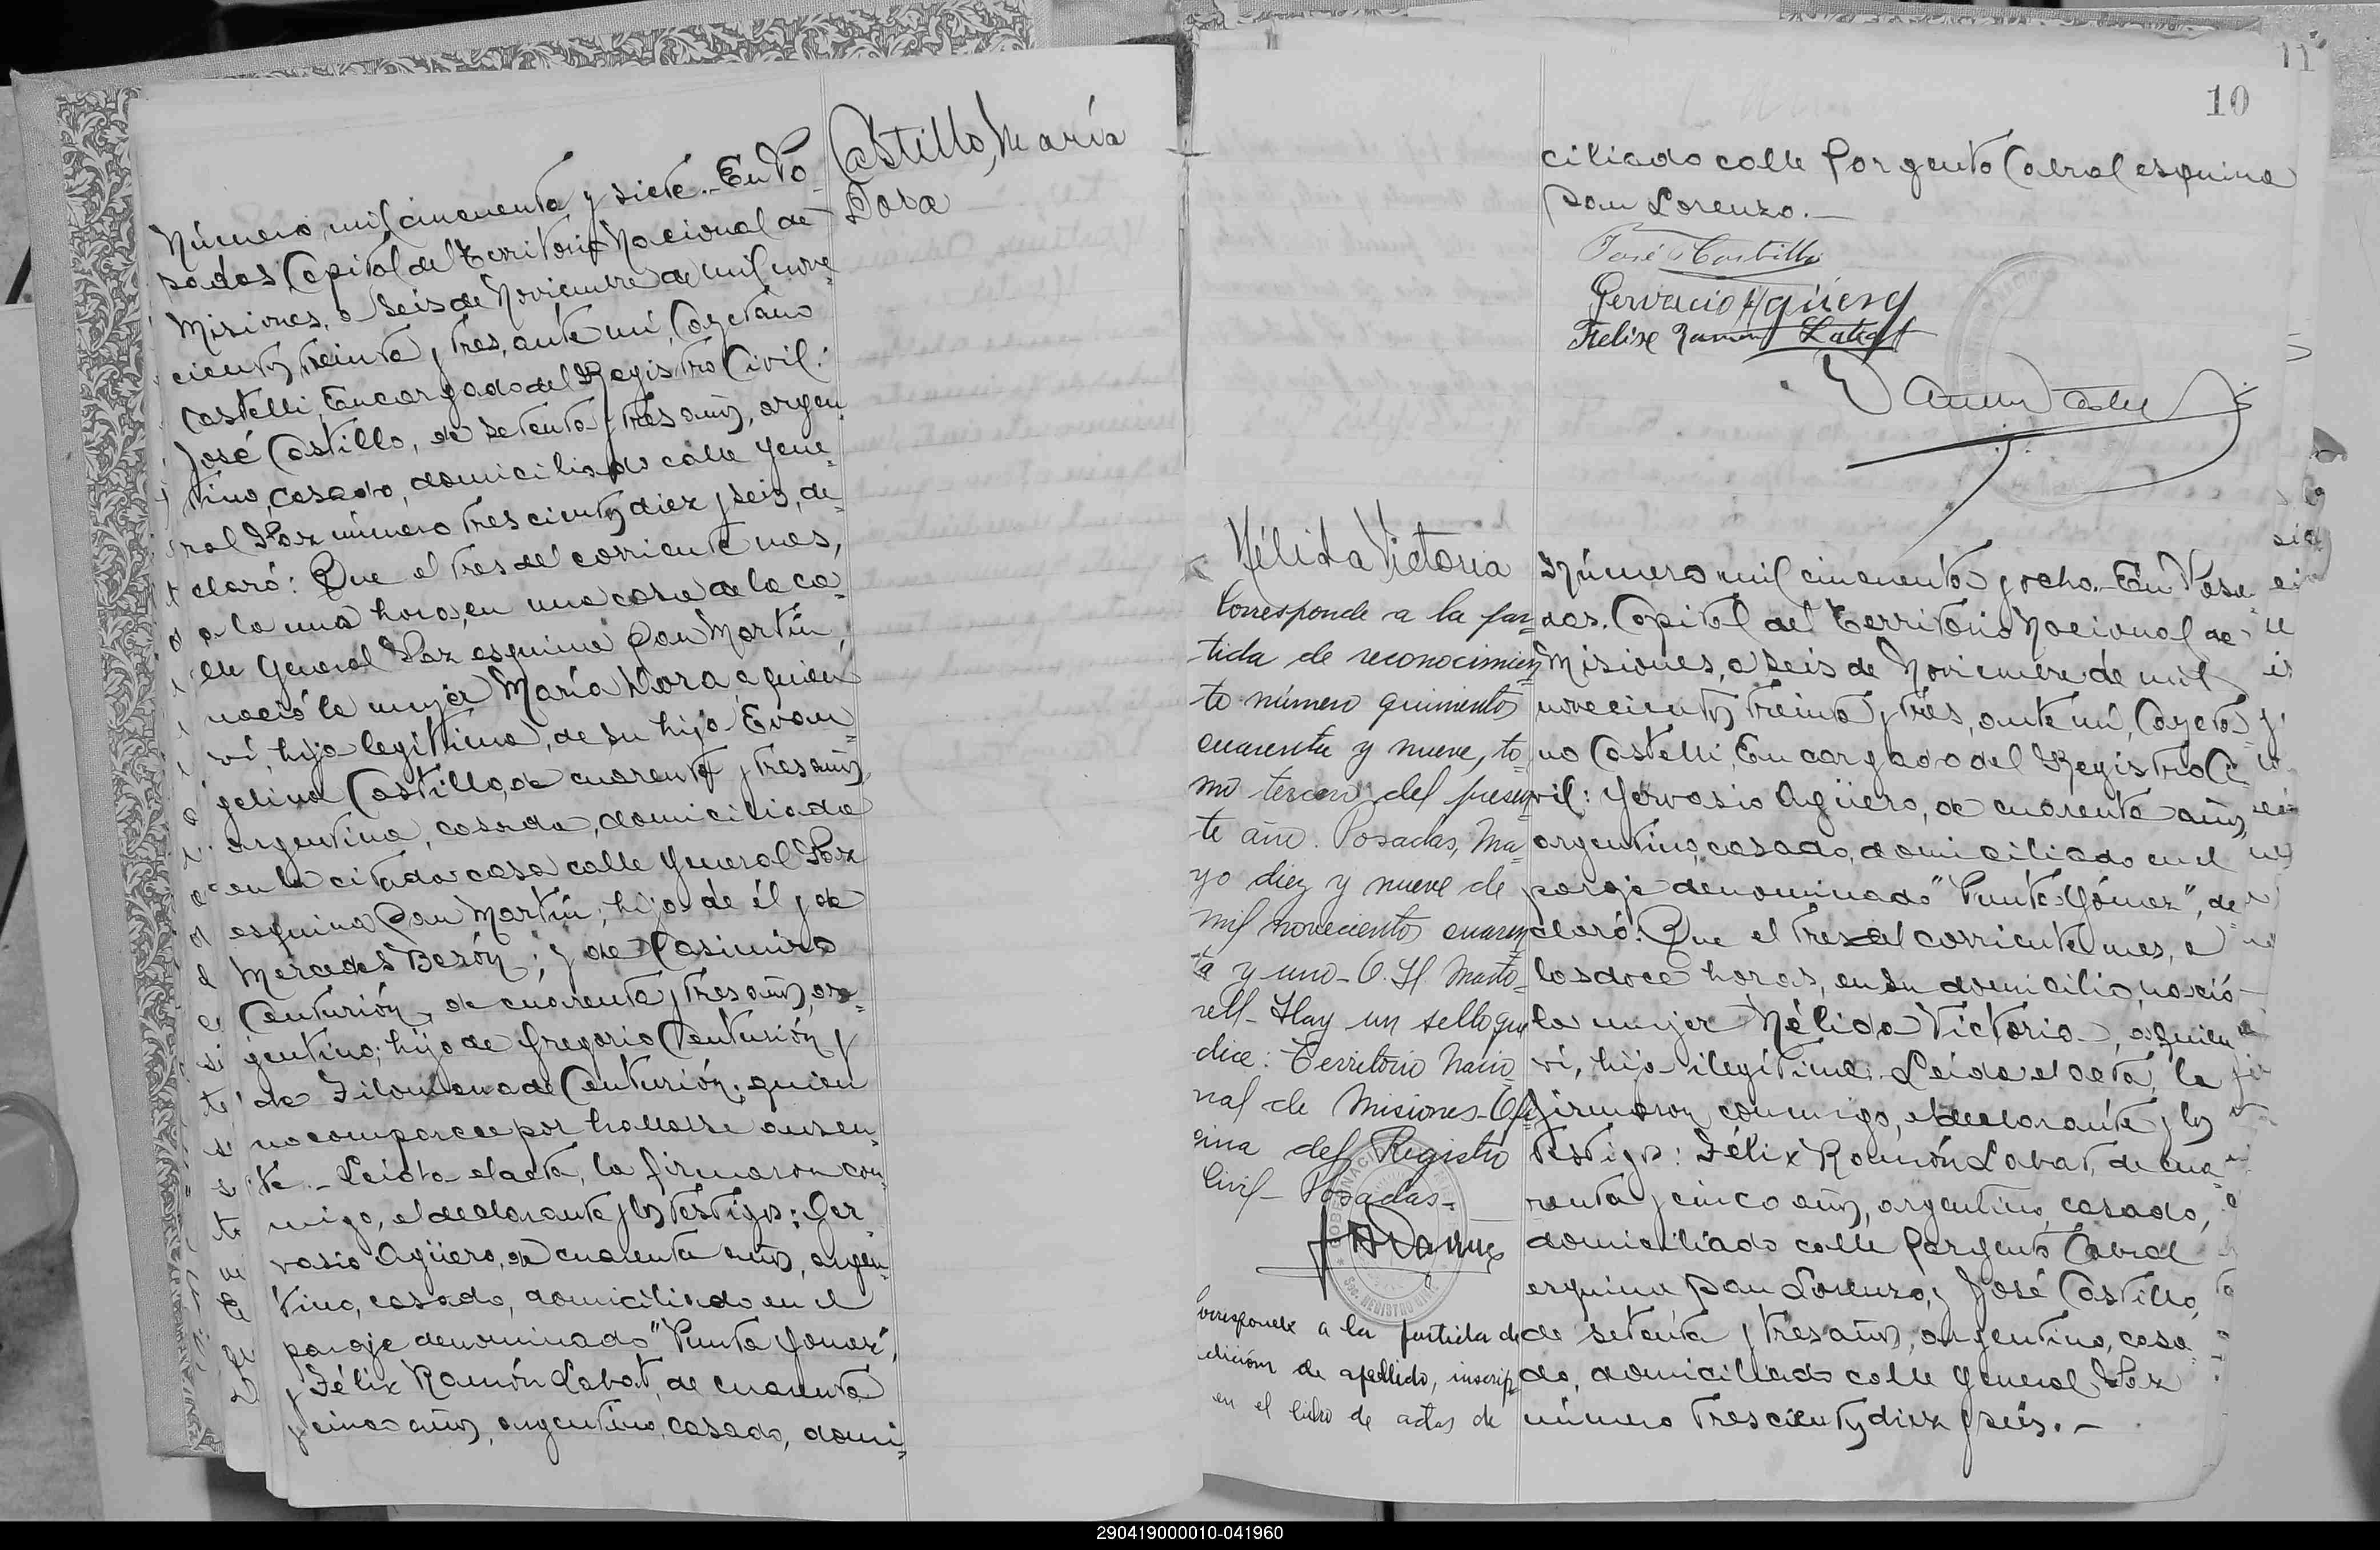 Castillo, María
Dora
Número mil cincuenta y siete.- En Po-
sadas, Capital del Territorio Nacional de
Misiones, a seis de Noviembre de mil nove-
cientos treinta y tres, ante mí, Cayetano
Castelli, Encargado del Registro Civil:
José Castillo, de setenta y tres años, argen-
tino, casado, domiciliado calle Gene-
ral Paz número trescientos diez y seis, de-
claró: Que el tres del corriente mes,
a la una hora, en una casa de la ca-
lle General Paz esquina San Martín,
nació la mujer María Dora, a quien
ví, hija legítima, de su hija Evan-
gelina Castillo, de cuarenta y tres años,
argentina, casada, domiciliada
en la citada casa calle General Paz
esquina San Martín; hija de él y de
Mercedes Bezón; y de Casimiro
Centurión, de cuarenta y tres años, ar-
gentino; hijo de Gregorio Centurión y
de Filomena de Centurión; quien
no comparece por hallarse ausen-
te.- Leída el acta, la firmaron con-
migo, el declarante y los testigos: Ger-
vasio Agüero, de cuarenta años, argen-
tino, casado, domiciliado en el
paraje denominado "Punta Gómez",
y Félix Ramón Labat, de cuarenta
y cinco años, argentino, casado, domi-
10
ciliado calle Sargento Cabral esquina
San Lorenzo.-
José Castillo
Gervacio Agüero
Felix Ramon Labat
Nélida Victoria
Corresponde a la par-
tida de reconocimien-
to número quinientos
cuarenta y nueve, to-
mo tercero del presen-
te año. Posadas, Ma-
yo diez y nueve de
mil novecientos cuaren-
ta y uno- O. H. Marto-
rell- Hay un sello que
dice: Territorio Nacio-
nal de Misiones- Ofi-
cina del Registro
Civil- Posadas-
Corresponde a la partida de
dición de apellido, inscrip-
en el libro de actas de
Número mil cincuenta y ocho.- En Posa-
das, Capital del Territorio Nacional de
Misiones, a seis de Noviembre de mil
novecientos treinta y tres, ante mí, Cayeta-
no Castelli, Encargado del Registro Ci-
vil: Gervasio Agüero, de cuarenta años,
argentino, casado, domiciliado en el
paraje denominado "Punta Gómez", de-
claró: Que el tres del corriente mes, a
las doce horas, en su domicilio, nació
la mujer Nélida Victoria, a quien
ví, hija ilegítima. Leída el acta, la
firmaron conmigo, el declarante y los
testigos: Félix Ramón Labat, de cua-
renta y cinco años, argentino, casado,
domiciliado calle Sargento Cabral
esquina San Lorenzo, y José Castillo,
de setenta y tres años, argentino, casa-
do, domiciliado calle General Paz
número trescientos diez y seis.-
290419000010-041960